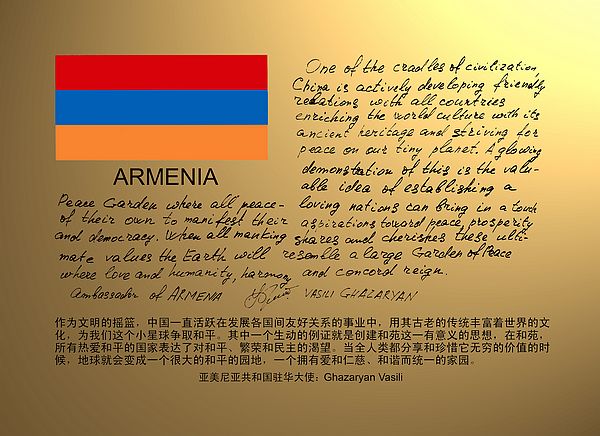 ARMENIA
One of the cradles of civilization,
China is actively developing friendly
relations with all countries
enriching the world culture with its
ancient heritage and striving for
peace on our tiny planet. A glowing
demonstration of this is the valu-
able idea of establishing a
Peace Garden where all peace- loving nations can bring in a touch
of their own to manifest their aspirations toward peace, prosperity
and democracy. When all manking shares and cherishes these ulti-
mate values the Earth will resemble a large Garden of Peace
where love and humanity, harmony and concord reign.
Ambassador of ARMENIA VASILI GHAZARYAN
作为文明的摇篮，中国一直活跃在发展各国间友好关系的事业中，用其古老的传统丰富着世界的文
化，为我们这个小星球争取和平。其中一个生动的例证就是创建和苑这一有意义的思想，在和苑，
所有热爱和平的国家表达了对和平、繁荣和民主的渴望。当全人类都分享和珍惜它无穷的价值的时
候，地球就会变成一个很大的和平的园地，一个拥有爱和仁慈、和谐而统一的家园。
亚美尼亚共和国驻华大使：Ghazaryan Vasili